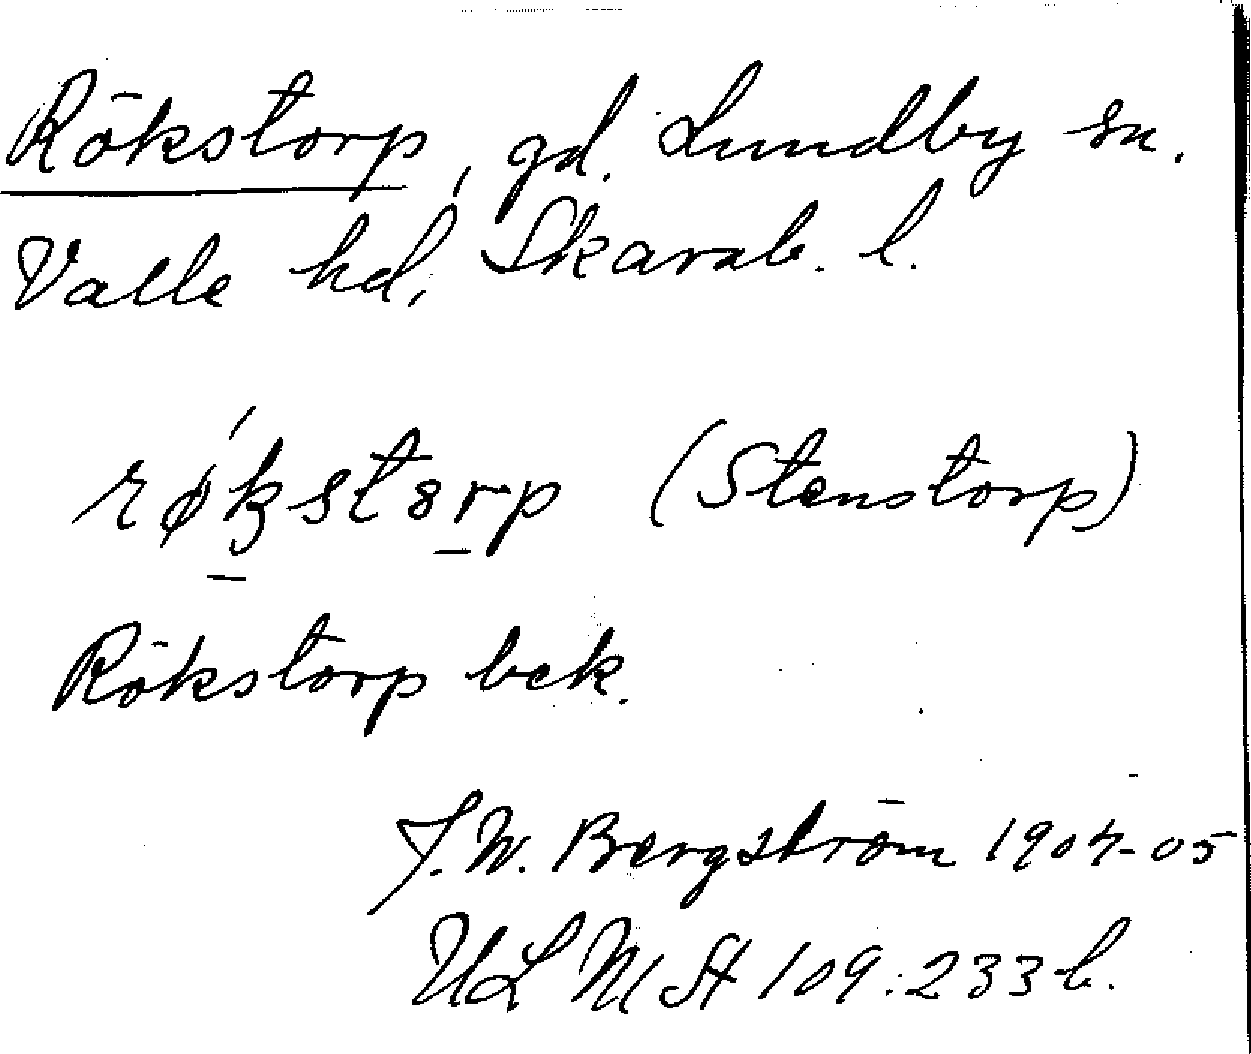 Rökstorp, gd. Lundby sn.
Valle hd, Skarab. l.
(Stenstorp)
Rökstorp bek.
J.W. Bergström 1904-05
ULMA 109:233 b.